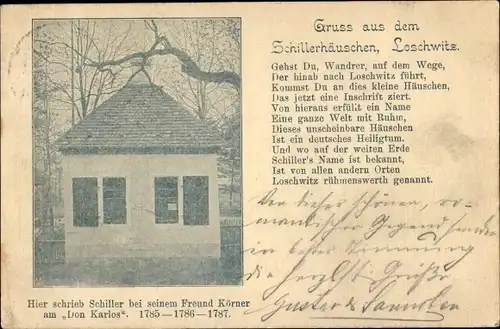 Gruss aus dem
Schillerhäuschen, Loschwitz.
Gehst Du, Wandrer, auf dem Wege,
Der hinab nach Loschwitz führt,
Kommst Du an dies kleine Häuschen,
Das jetzt eine Inschrift ziert.
Von hieraus erfüllt ein Name
Eine ganze Welt mit Ruhm,
Dieses unscheinbare Häuschen
Ist ein deutsches Heiligtum.
Und wo auf der weiten Erde
Schiller's Name ist bekannt,
Ist von allen andern Orten
Loschwitz rühmenswerth genannt.
Von dieser schönen, ro-
mantischen Gegend senden
in bester Stimmung
die herzlichsten Grüße
Gustav &
Hier schrieb Schiller bei seinem Freund Körner
am „Don Karlos". 1785—1786—1787.